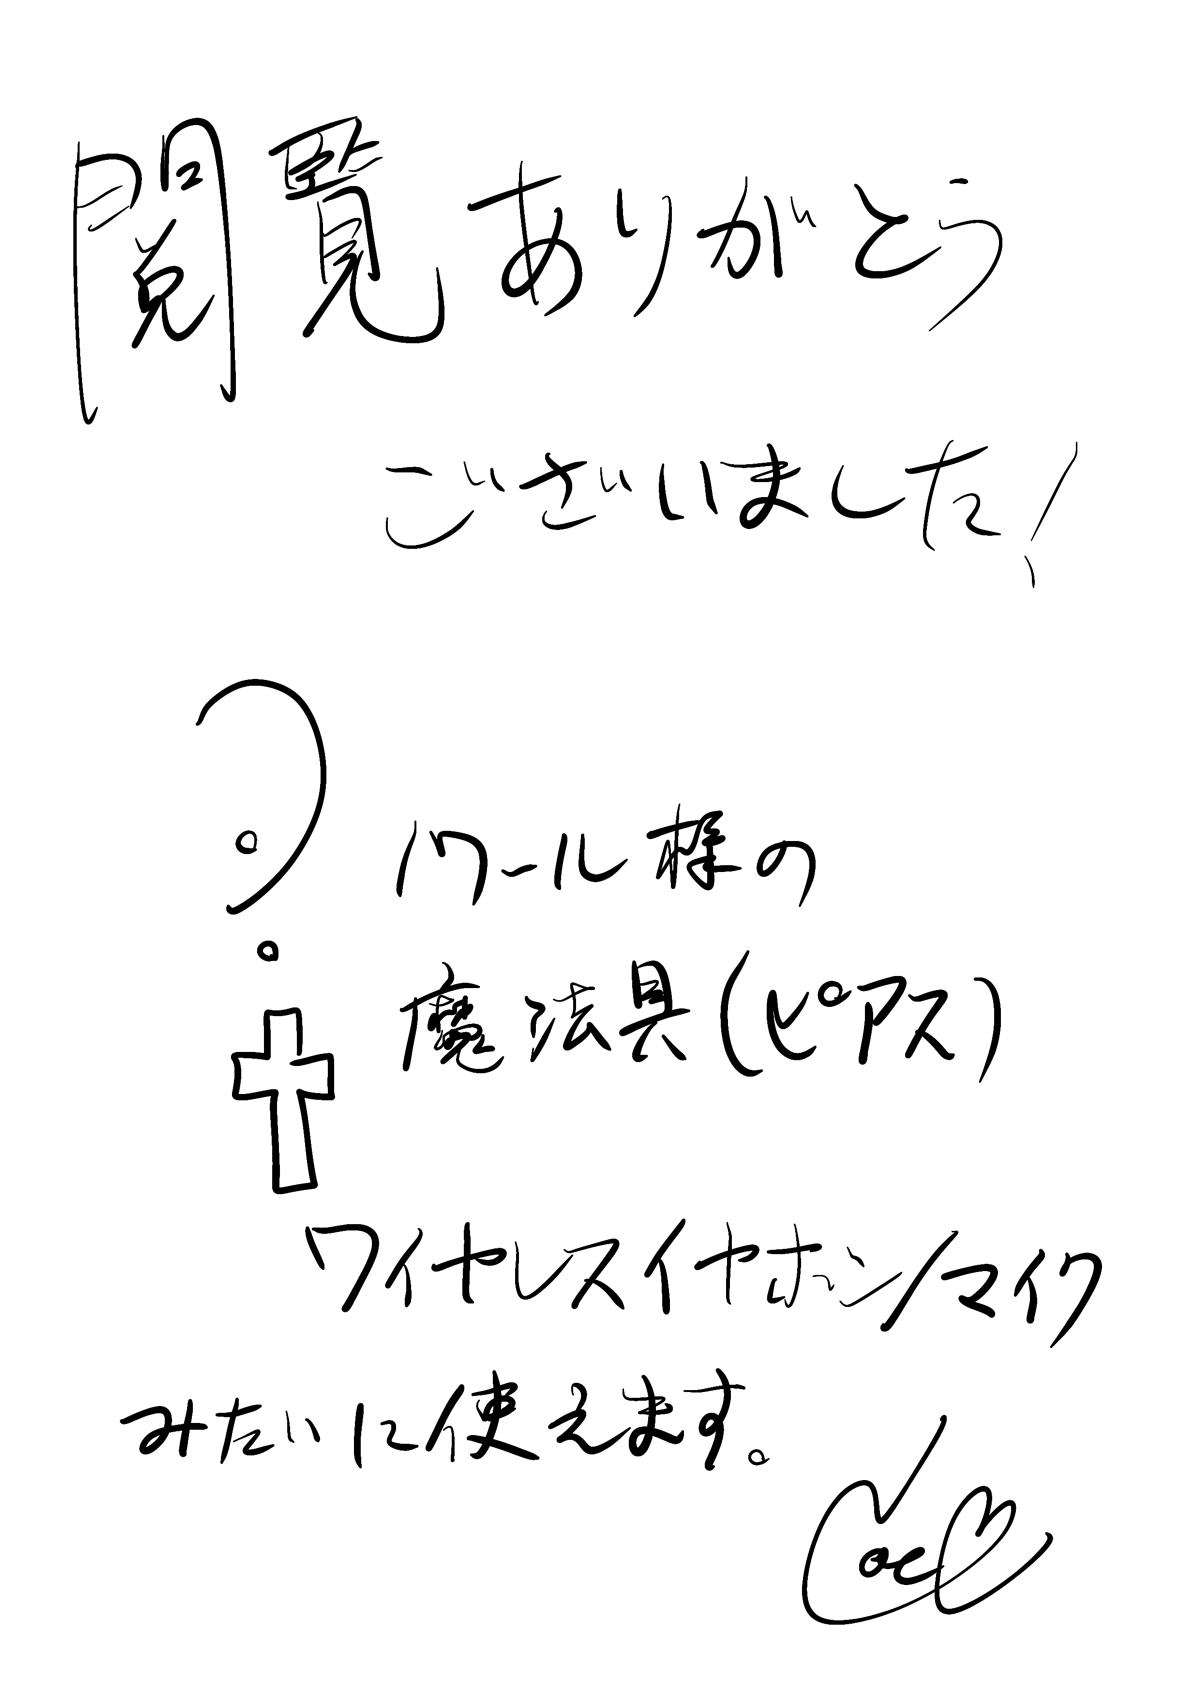 閲覧ありがとう
ございました!
ノワール様の
魔法具(ピアス)
ワイヤレスイヤホン/マイク
みたいに使えます。
Noel